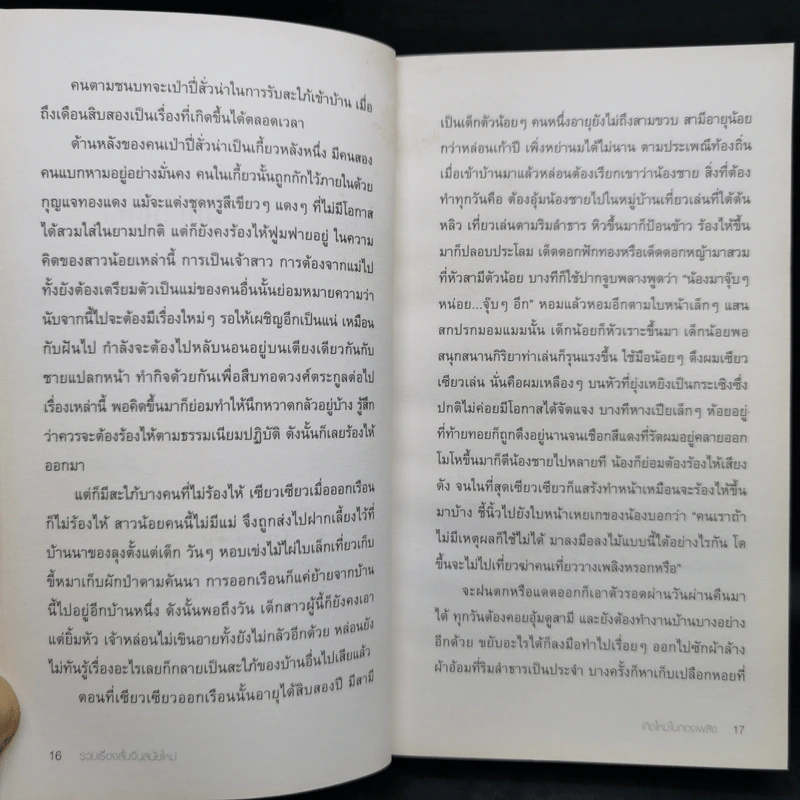 คนตามชนบทจะเป่าปี่สั่วน่าในการรับสะใภ้เข้าบ้าน เมื่อ
ถึงเดือนสิบสองเป็นเรื่องที่เกิดขึ้นได้ตลอดเวลา
ด้านหลังของคนเป่าปี่สั่วน่าเป็นเกี้ยวหลังหนึ่ง มีคนสอง
คนแบกหามอยู่อย่างมั่นคง คนในเกี้ยวนั้นถูกกักไว้ภายในด้วย
กุญแจทองแดง แม้จะแต่งชุดหรูสีเขียวๆ แดงๆ ที่ไม่มีโอกาส
ได้สวมใส่ในยามปกติ แต่ก็ยังคงร้องไห้ฟูมฟายอยู่ ในความ
คิดของสาวน้อยเหล่านี้ การเป็นเจ้าสาว การต้องจากแม่ไป
ทั้งยังต้องเตรียมตัวเป็นแม่ของคนอื่นนั้นย่อมหมายความว่า
นับจากนี้ไปจะต้องมีเรื่องใหม่ๆ รอให้เผชิญอีกเป็นแน่ เหมือน
กับฝันไป กำลังจะต้องไปหลับนอนอยู่บนเตียงเดียวกันกับ
ชายแปลกหน้า ทำกิจด้วยกันเพื่อสืบทอดวงศ์ตระกูลต่อไป
เรื่องเหล่านี้ พอคิดขึ้นมาก็ย่อมทำให้นึกหวาดกลัวอยู่บ้าง รู้สึก
ว่าควรจะต้องร้องไห้ตามธรรมเนียมปฏิบัติ ดังนั้นก็เลยร้องไห้
ออกมา
แต่ก็มีสะใภ้บางคนที่ไม่ร้องไห้ เซียวเซียวเมื่อออกเรือน
ก็ไม่ร้องไห้ สาวน้อยคนนี้ไม่มีแม่ จึงถูกส่งไปฝากเลี้ยงไว้ที่
บ้านนาของลุงตั้งแต่เด็ก วันๆ หอบเข่งไม้ไผ่ใบเล็กเที่ยวเก็บ
ขี้หมาเก็บผักป่าตามคันนา การออกเรือนก็แค่ย้ายจากบ้าน
นี้ไปอยู่อีกบ้านหนึ่ง ดังนั้นพอถึงวัน เด็กสาวผู้นี้ก็ยังคงเอา
แต่ยิ้มหัว เจ้าหล่อนไม่เขินอายทั้งยังไม่กลัวอีกด้วย หล่อนยัง
ไม่ทันรู้เรื่องอะไรเลยก็กลายเป็นสะใภ้ของบ้านอื่นไปเสียแล้ว
ตอนที่เซียวเซียวออกเรือนนั้นอายุได้สิบสองปี มีสามี
16 รวมเรื่องสั้นจีนสมัยใหม่
เป็นเด็กตัวน้อยๆ คนหนึ่งอายุยังไม่ถึงสามขวบ สามีอายุน้อย
กว่าหล่อนเก้าปี เพิ่งหย่านมได้ไม่นาน ตามประเพณีท้องถิ่น
เมื่อเข้าบ้านมาแล้วหล่อนต้องเรียกเขาว่าน้องชาย สิ่งที่ต้อง
ทำทุกวันคือ ต้องอุ้มน้องชายไปในหมู่บ้านเที่ยวเล่นที่ใต้ต้น
หลิว เที่ยวเล่นตามริมลำธาร หิวขึ้นมาก็ป้อนข้าว ร้องไห้ขึ้น
มาก็ปลอบประโลม เด็ดดอกฟักทองหรือเด็ดดอกหญ้ามาสวม
ที่หัวสามีตัวน้อย บางทีก็ใช้ปากจูบพลางพูดว่า "น้องมาจุ๊บๆ
หน่อย...จุ๊บๆ อีก" หอมแล้วหอมอีกตามใบหน้าเล็กๆ แสน
สกปรกมอมแมมนั้น เด็กน้อยก็หัวเราะขึ้นมา เด็กน้อยพอ
สนุกสนานกิริยาท่าเล่นก็รุนแรงขึ้น ใช้มือน้อยๆ ดึงผมเซียว
เซียวเล่น นั่นคือผมเหลืองๆ บนหัวที่ยุ่งเหยิงเป็นกระเซิงซึ่ง
ปกติไม่ค่อยมีโอกาสได้จัดแจง บางทีหางเปียเล็กๆ ห้อยอยู่
ที่ท้ายทอยก็ถูกดึงอยู่นานจนเชือกสีแดงที่รัดผมอยู่คลายออก
โมโหขึ้นมาก็ตีน้องชายไปหลายที น้องก็ย่อมต้องร้องไห้เสียง
ดัง จนในที่สุดเซียวเซียวก็แสร้งทำหน้าเหมือนจะร้องไห้ขึ้น
มาบ้าง ชี้นิ้วไปยังใบหน้าเหยเกของน้องบอกว่า "คนเราถ้า
ไม่มีเหตุผลก็ใช้ไม่ได้ มาลงมือลงไม้แบบนี้ได้อย่างไรกัน โต
ขึ้นจะไม่ไปเที่ยวฆ่าคนเที่ยววางเพลิงหรอกหรือ"
จะฝนตกหรือแดดออกก็เอาตัวรอดผ่านวันผ่านคืนมา
ได้ ทุกวันต้องคอยอุ้มดูสามี และยังต้องทำงานบ้านบางอย่าง
อีกด้วย ขยับอะไรได้ก็ลงมือทำไปเรื่อยๆ ออกไปซักผ้าล้าง
ผ้าอ้อมที่ริมลำธารเป็นประจำ บางครั้งก็หาเก็บเปลือกหอยที่
เกิดใหม่ในกองเพลิง 17